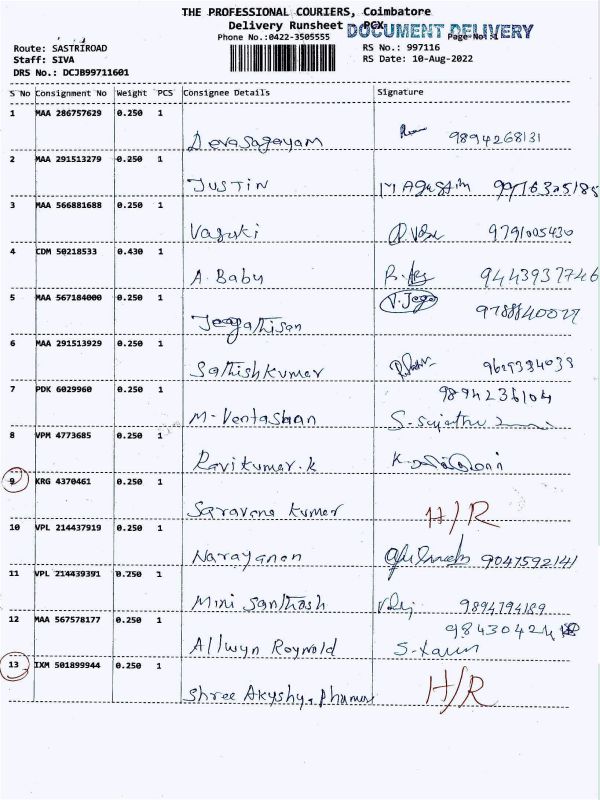 THE PROFESSIONAL COURIERS, Coimbatore
Delivery Runsheet - PCX
DOCUMENT DELIVERY
Phone No.:0422-3505555 Page No:1
Route: SASTRIROAD RS No.: 997116
Staff: SIVA RS Date: 10-Aug-2022
DRS No.: DCJB99711601
S No Consignment No Weight PCS Consignee Details Signature
1 MAA 286757629 0.250 1
Devasagayam 9894268131
2 MAA 291513279 0.250 1
JUSTIN
3 MAA 566881688 0.250 1
Vasuki 9791005430
4 CDM 50218533 0.430 1
A. Babu 9443937746
5 MAA 567184000 0.250 1
Jeegathisan V. Jega
6 MAA 291513929 0.250 1
Sathishkumar
7 PDK 6029960 0.250 1 9894236104
M. Ventashan
8 VPM 4773685 0.250 1
Ravikumar. k
9 KRG 4370461 0.250 1
Saravana kumar H/R
10 VPL 214437919 0.250 1
Narayanan 9047592141
11 VPL 214439391 0.250 1
Mini Santhosh 9894794189
12 MAA 567578177 0.250 1
Allwyn Roynold
13 IXM 501899944 0.250 1
Shree H/R